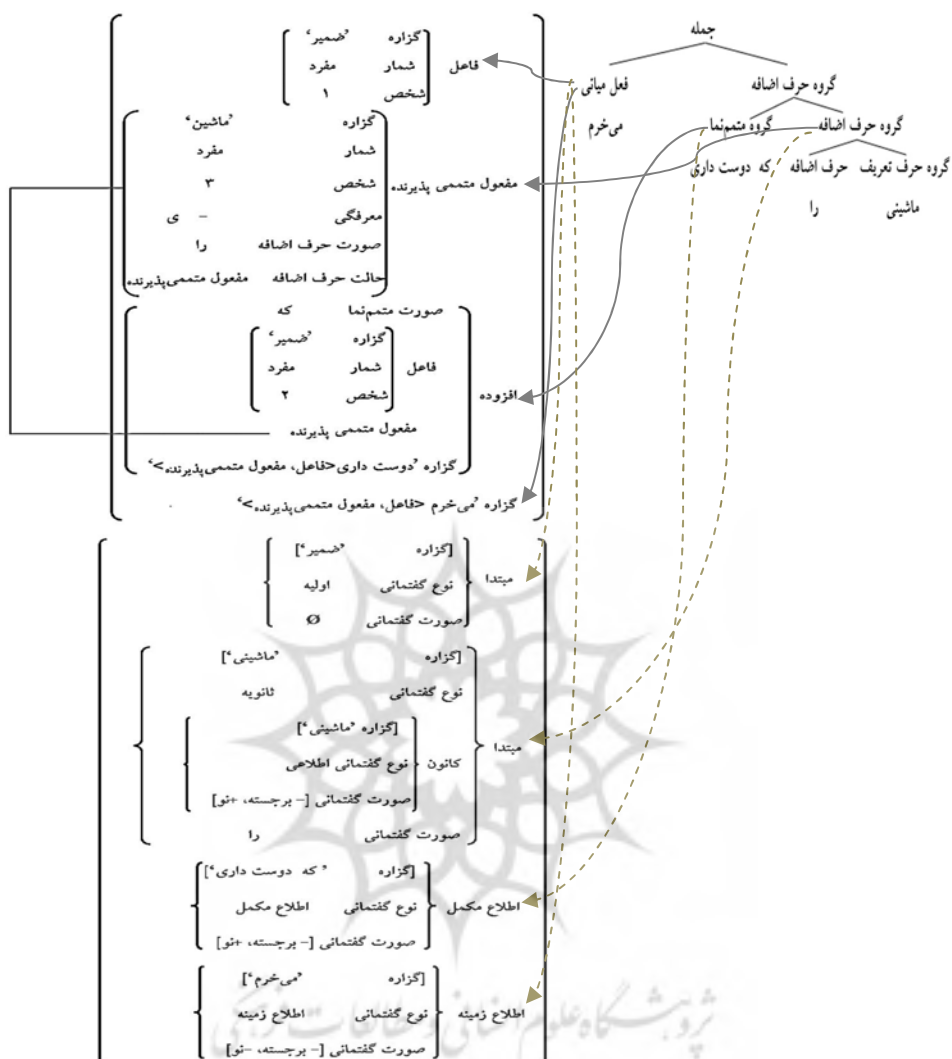 جمله
گروه حرف اضافه فعل میانی
گروه حرف اضافه گروه متمم‌نما می‌خرم
گروه حرف تعریف حرف اضافه که دوست داری
ماشینی را
فاعل
گزاره ’ضمیر‘
شمار مفرد
شخص ۱
مفعول متممی پذیرنده
گزاره ’ماشین‘
شمار مفرد
شخص ۳
معرفگی - ی
صورت حرف اضافه را
حالت حرف اضافه مفعول متممی‌پذیرنده
افزوده
صورت متمم‌نما که
فاعل
گزاره ’ضمیر‘
شمار مفرد
شخص ۲
مفعول متممی پذیرنده
گزاره ’دوست داری<فاعل، مفعول متممی‌پذیرنده>‘
گزاره ’می‌خرم <فاعل، مفعول متممی‌پذیرنده>‘
مبتدا
[گزاره ’ضمیر‘]
نوع گفتمانی اولیه
صورت گفتمانی Ø
مبتدا
[گزاره ’ماشینی‘]
نوع گفتمانی ثانویه
کانون
[گزاره ’ماشینی‘]
نوع گفتمانی اطلاعی
صورت گفتمانی [- برجسته، +نو]
صورت گفتمانی را
اطلاع مکمل
[گزاره ’ که دوست داری‘]
نوع گفتمانی اطلاع مکمل
صورت گفتمانی [- برجسته، +نو]
اطلاع زمینه
[گزاره ’می‌خرم‘]
نوع گفتمانی اطلاع زمینه
صورت گفتمانی [- برجسته، -نو]
پژوهشگاه علوم انسانی و مطالعات فرهنگی